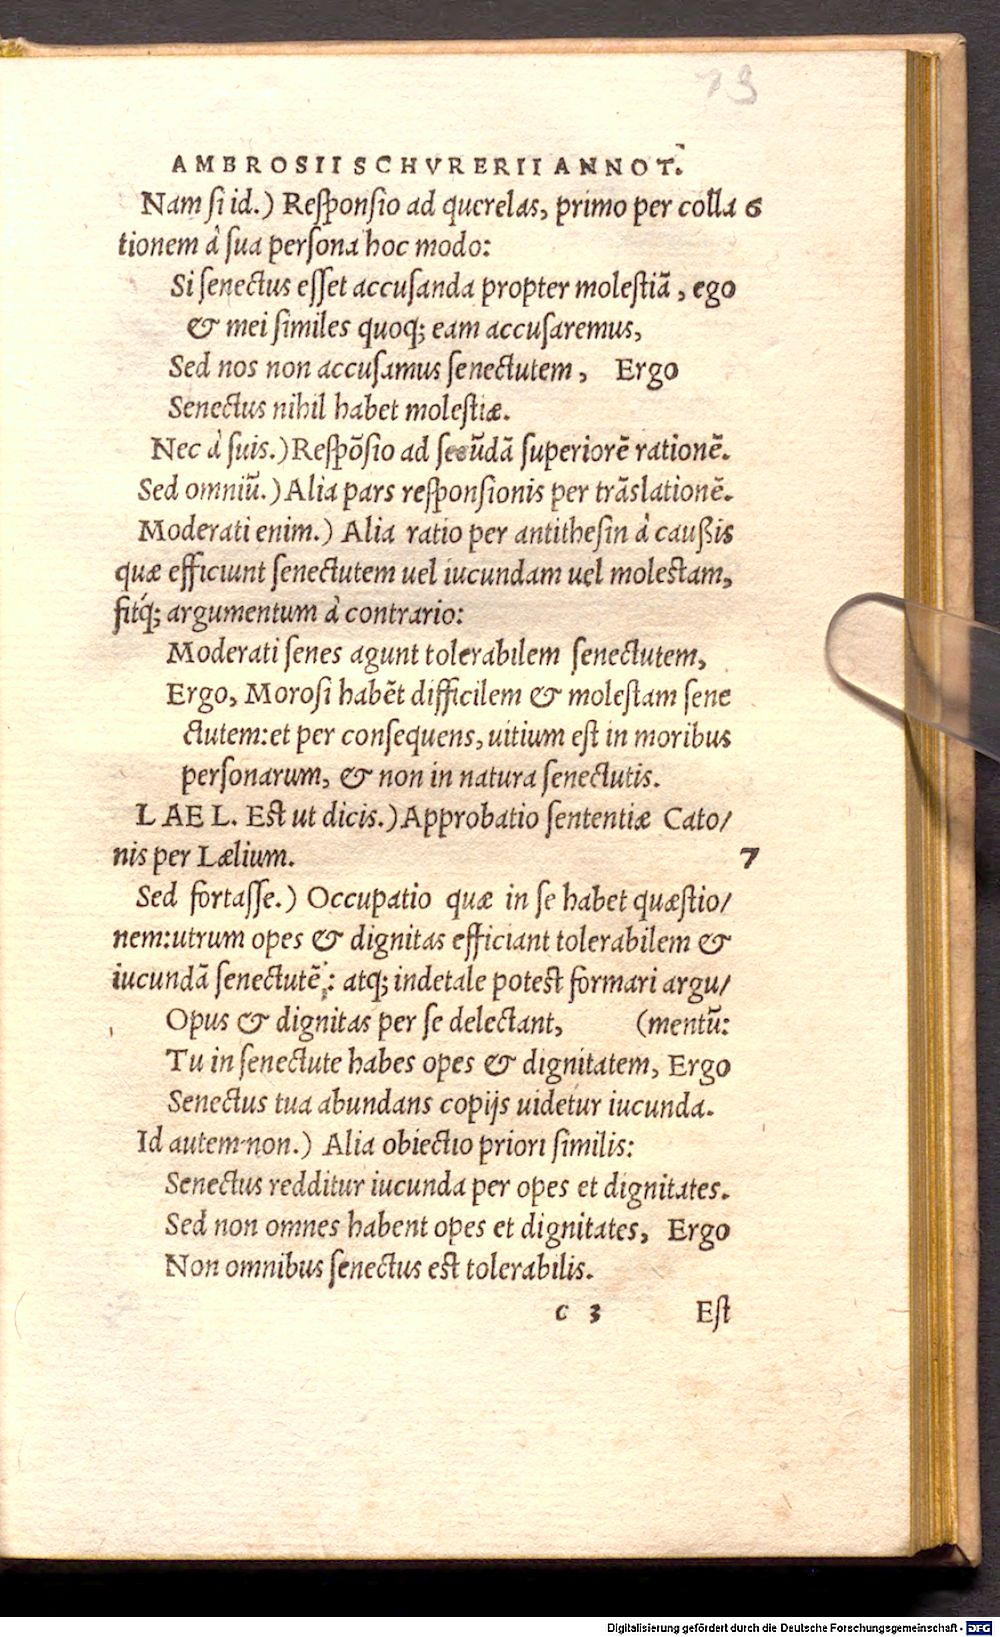 73
AMBROSII SCHVRERII ANNOT.
Nam ſi id.) Reſponſio ad querelas, primo per colla 6
tionem à ſua perſona hoc modo:
Si ſenectus eſſet accuſanda propter moleſtiã, ego
& mei ſimiles quoq; eam accuſaremus,
Sed nos non accuſamus ſenectutem, Ergo
Senectus nihil habet moleſtiæ.
Nec à ſuis.) Reſpõſio ad ſecũdã ſuperiorẽ rationẽ.
Sed omniũ.) Alia pars reſponſionis per trãslationẽ.
Moderati enim.) Alia ratio per antitheſin à caußis
quæ efficiunt ſenectutem uel iucundam uel molestam,
fitq́; argumentum à contrario:
Moderati ſenes agunt tolerabilem ſenectutem,
Ergo, Moroſi habẽt difficilem & moleſtam ſene
ctutem: et per conſequens, uitium eſt in moribus
perſonarum, & non in natura ſenectutis.
LAEL. Est ut dicis.) Approbatio ſententiæ Cato/
nis per Lælium. 7
Sed fortaſſe.) Occupatio quæ in ſe habet quæſtio/
nem: utrum opes & dignitas efficiant tolerabilem &
iucundã ſenectutẽ: atq; indetale potest formari argu/
Opus & dignitas per ſe delectant, (mentũ:
Tu in ſenectute habes opes & dignitatem, Ergo
Senectus tua abundans copijs uidetur iucunda.
Id autem non.) Alia obiectio priori ſimilis:
Senectus redditur iucunda per opes et dignitates.
Sed non omnes habent opes et dignitates, Ergo
Non omnibus ſenectus est tolerabilis.
c 3 Eſt
Digitalisierung gefördert durch die Deutsche Forschungsgemeinschaft - DFG